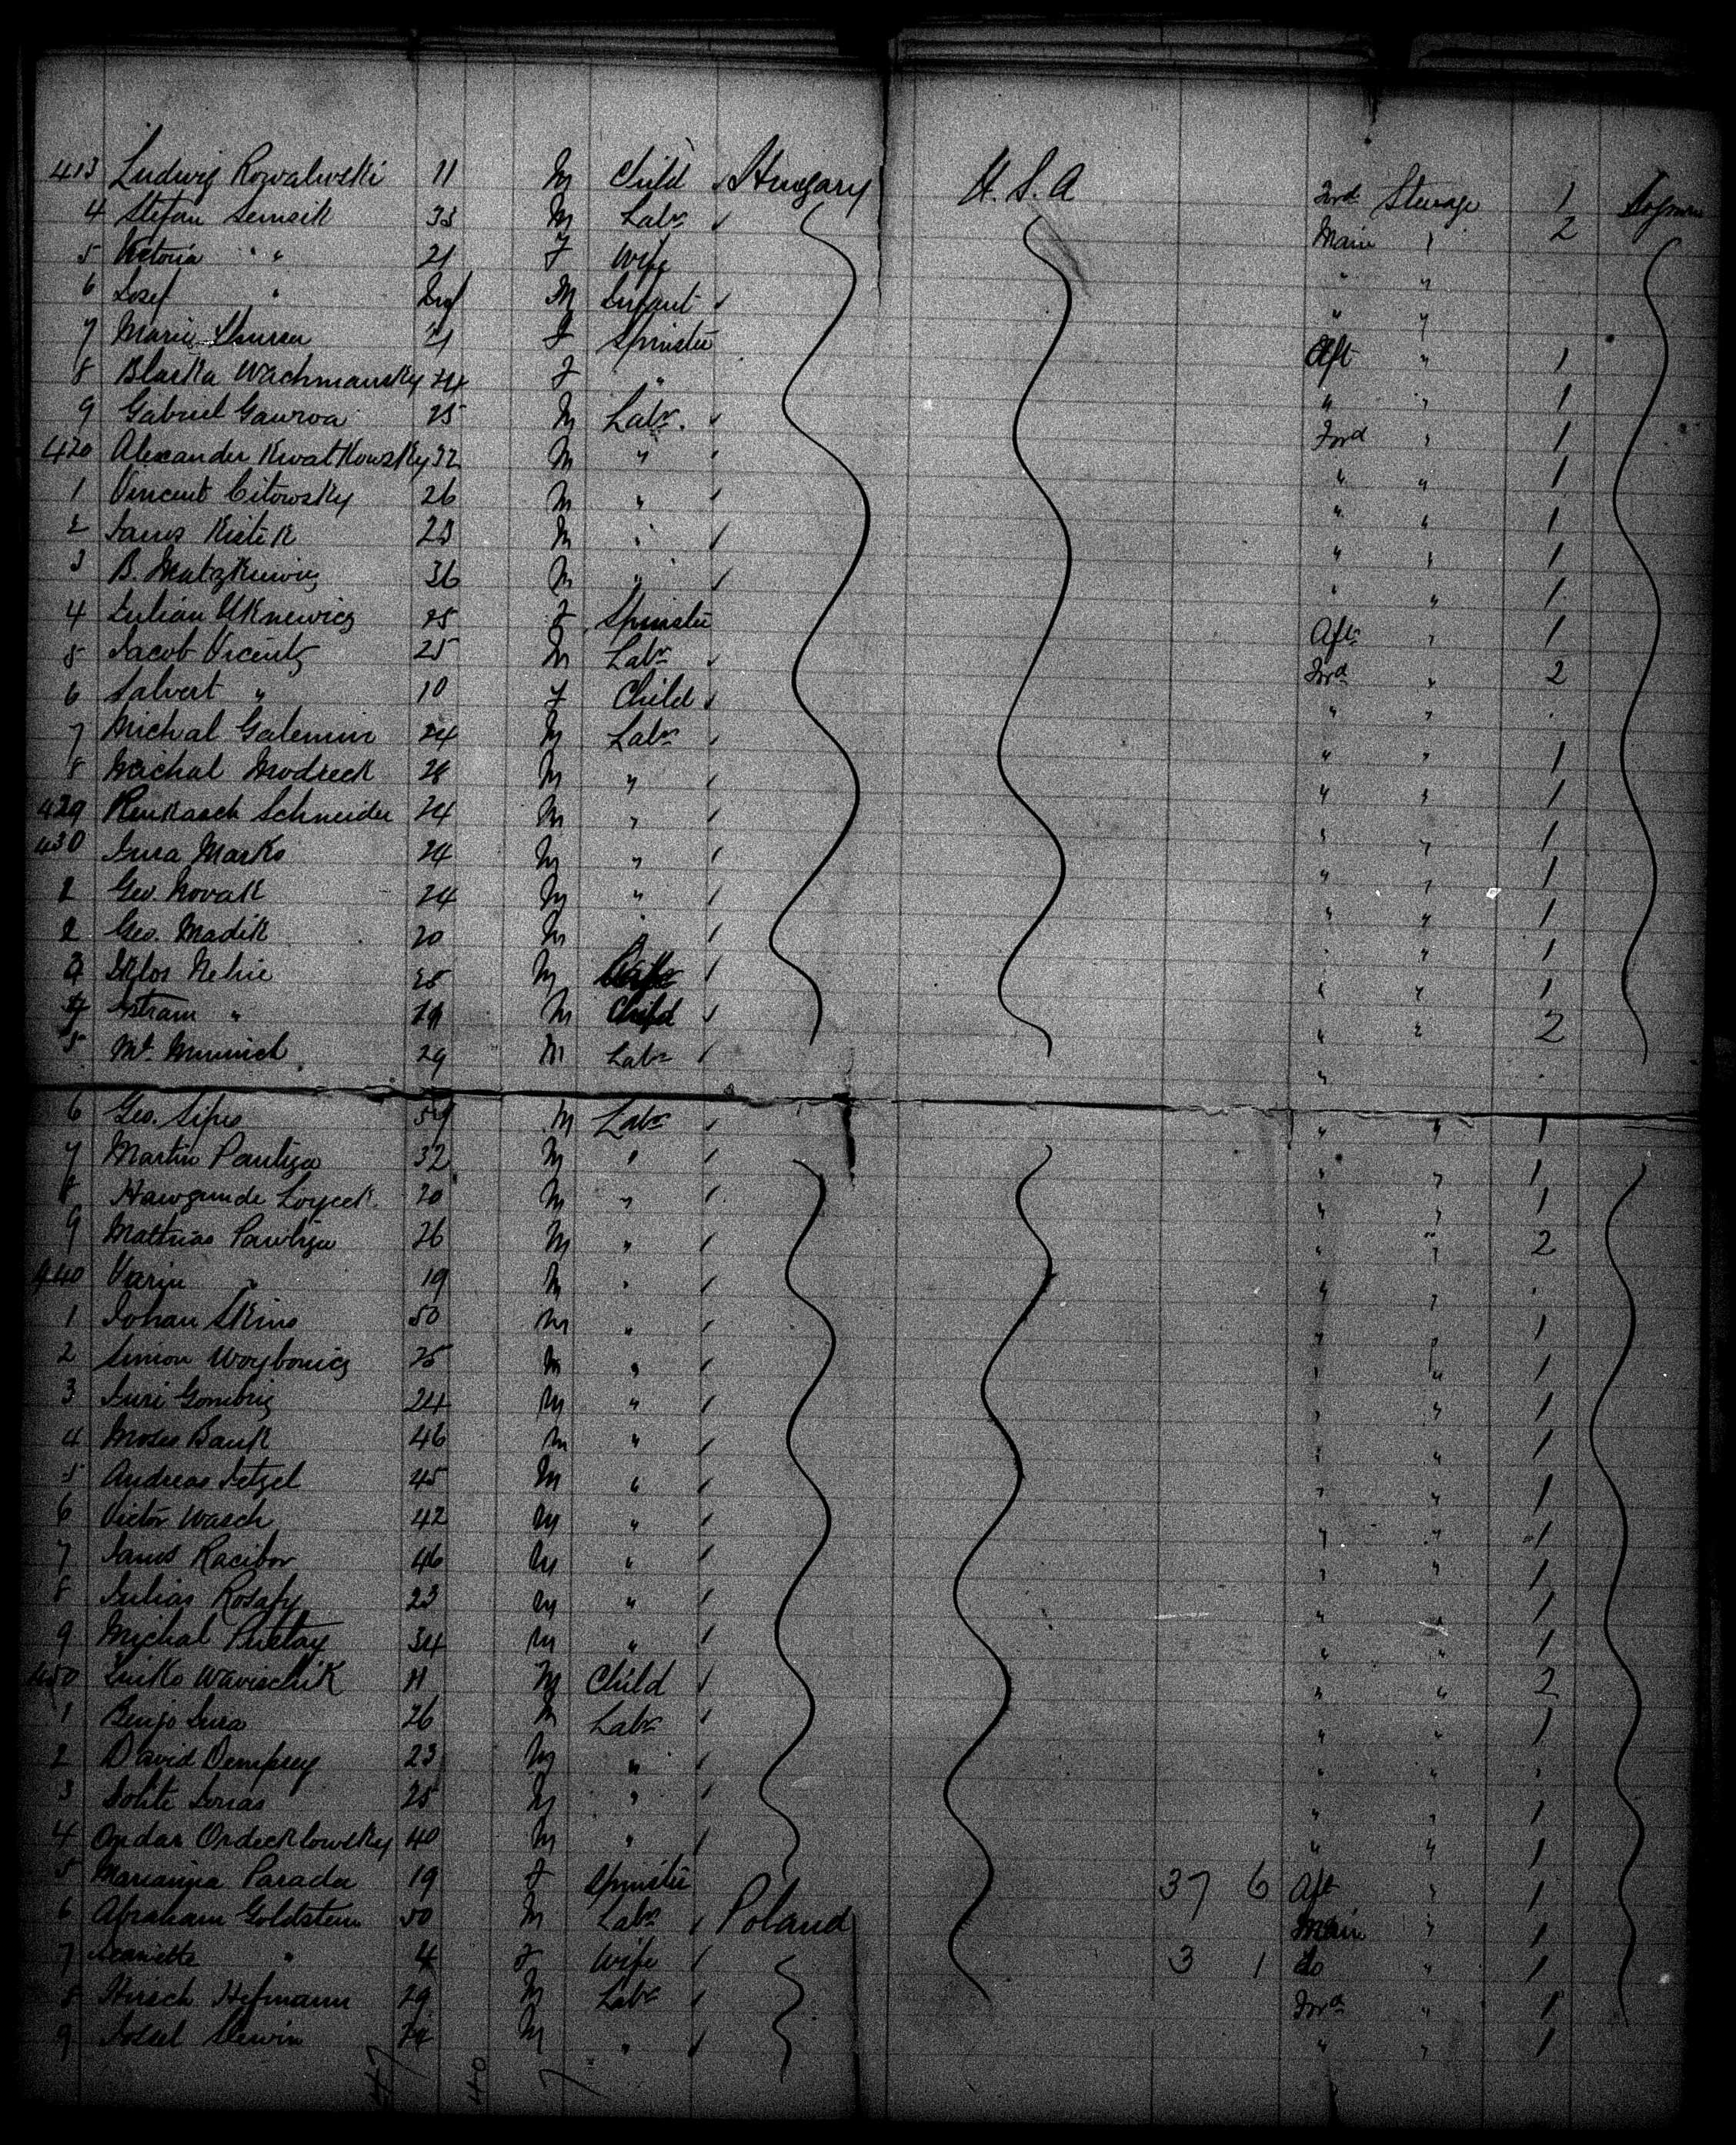 413 Ludwig Kowalewski 11 M Child Hungary U.S.A Ford Steerage 1
4 Stefan Semsik 33 M Labr Main " 2
5 Victoria " " 21 F Wife " "
6 Josef " Inf M Infant " "
7 Marie 21 F Spinster Aft " 1
8 Blaska Wachmansky 24 F " " " 1
9 Gabriel Gaurva 25 M Labr. Ford " 1
420 Alexander Kwatkowsky 32 M " " " 1
1 Vincent Citowsky 26 M " " " 1
2 Janos Kistek 23 M " " " 1
3 B. Matzkiewicz 36 M " " " 1
4 Julian Uknewicz 25 F Spinster Aft " 1
5 Jacob Vicentz 25 M Labr Ford " 2
6 Salvert " 10 F Child " "
7 Michal Galemin 24 M Labr " " 1
8 Michal Modreck 28 M " " " 1
429 Schneider 24 M " " " 1
430 Jura Marko 24 M " " " 1
1 Geo. Novak 24 M " " " 1
2 Geo. Madik 20 M " " " 1
3 Nehie 25 M " " 1
4 Istram " M Child " " 2
5 Mt. Minnich 29 M Labr " "
6 Geo. Sipos 59 M Labr " " 1
7 Martin Pauliza 32 M " " " 1
8 Loycek 20 M " " " 1
9 Mathias Pauliza 26 M " " " 2
440 " 19 M " " "
1 Johan Skino 50 M " " " 1
2 Simon Woybonicz 25 M " " " 1
3 Juri Gombriz 24 M " " " 1
4 Moses Bank 46 M " " " 1
5 Andreas Tetzel 45 M " " " 1
6 Victor Wasch 42 M " " " 1
7 Janos Racibor 46 M " " " 1
8 Julias Rosafy 23 M " " " 1
9 Michal 34 M " " " 1
450 Wavischik 11 M Child " " 2
1 Benjo Jura 26 M Labr " " 1
2 David Dempsey 23 M " " "
3 Jonas 25 M " " " 1
4 Ondar Ordecklowsky 40 M " " " 1
5 Marianna Parada 19 F Spinster 37 6 Aft " 1
6 Abraham Goldstein 50 M Labr Poland Main " 1
7 " 4 F Wife 3 1 do " 1
8 Hirsch Hefmann 29 M Labr Ford " 1
9 M " " " 1
47 40 7